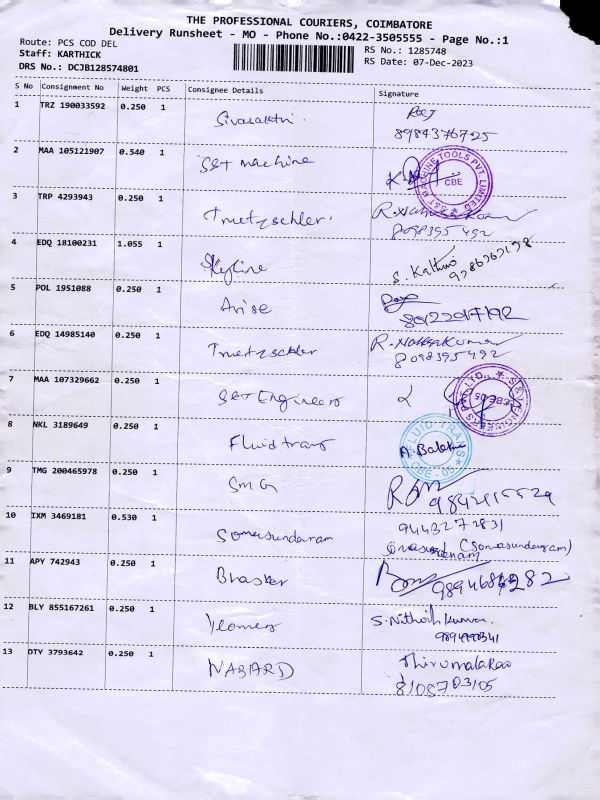 THE PROFESSIONAL COURIERS, COIMBATORE
Delivery Runsheet - MO - Phone No.:0422-3505555 - Page No.:1
Route: PCS COD DEL
RS No.: 1285748
Staff: KARTHICK
RS Date: 07-Dec-2023
DRS No.: DCJB128574801
S No Consignment No Weight PCS Consignee Details Signature
1 TRZ 190033592 0.250 1 Sivasakthi
8984376725
2 MAA 105121907 0.540 1 S&T machine
S&T MACHINE TOOLS PVT. LIMITED
CBE
3 TRP 4293943 0.250 1 Truetzschler.
8098395492
4 EDQ 18100231 1.055 1 Skyline
5 POL 1951088 0.250 1 Arise
6 EDQ 14985140 0.250 1 Truetzschler
8098395492
7 MAA 107329662 0.250 1 S&T Engineers
S&T ENGINEERS PVT. LTD.
CBE-05
8 NKL 3189649 0.250 1 Fluid trans
FLUID-TRANS
CBE - 05
9 TMG 200465978 0.250 1 SMG
10 IXM 3469181 0.530 1 Somasundaram
9443272831
(Somasundaram)
11 APY 742943 0.250 1 Bhasker
12 BLY 855167261 0.250 1
S. Nithish kumar.
13 OTY 3793642 0.250 1 NABARD
Thirumalarao
8108703105